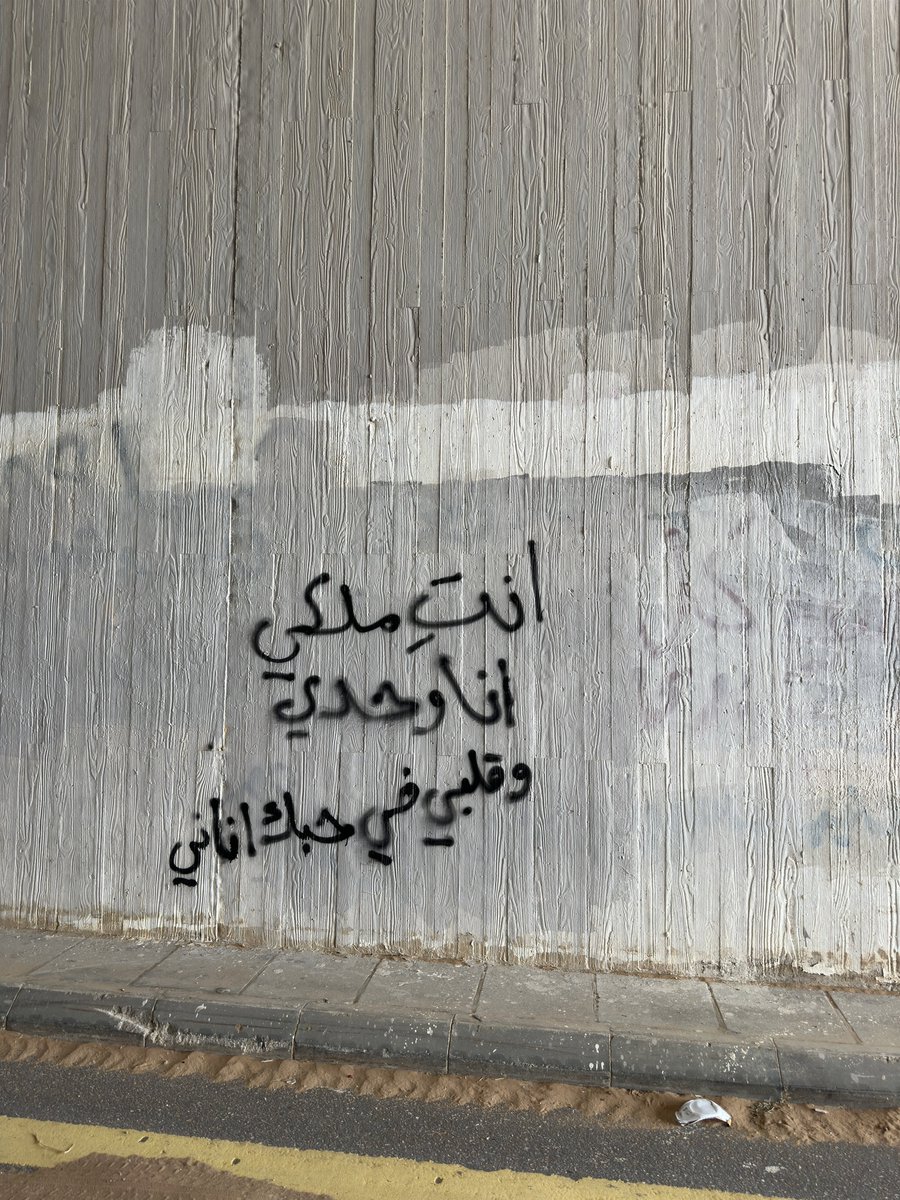 انتِ ملكي
انا وحدي
وقلبي في حبك اناني